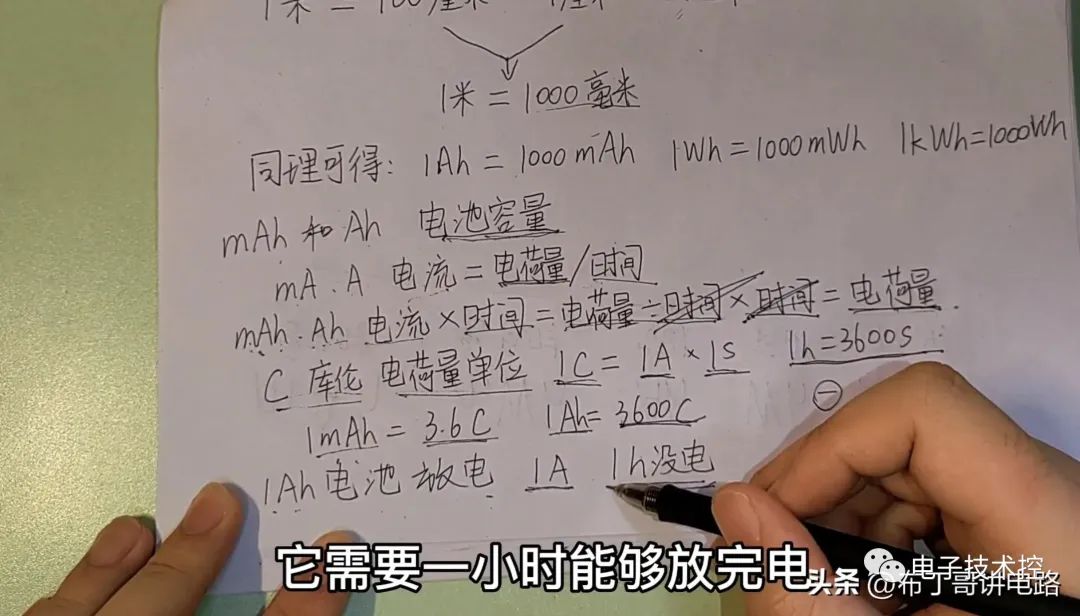 1米 = 100厘米
1米 = 1000毫米
同理可得: 1Ah = 1000mAh 1Wh=1000mWh 1kWh=1000Wh
mAh 和 Ah 电池容量
mA . A 电流 = 电荷量/时间
mAh . Ah 电流 × 时间 = 电荷量 ÷ 时间 × 时间 = 电荷量 .
C 库伦 电荷量单位 1C = 1A × 1s 1h=3600s
1mAh = 3.6C 1Ah= 3600C
1Ah 电池 放电 1A 1h没电
它需要一小时能够放完电
电子技术控
头条 @布丁哥讲电路